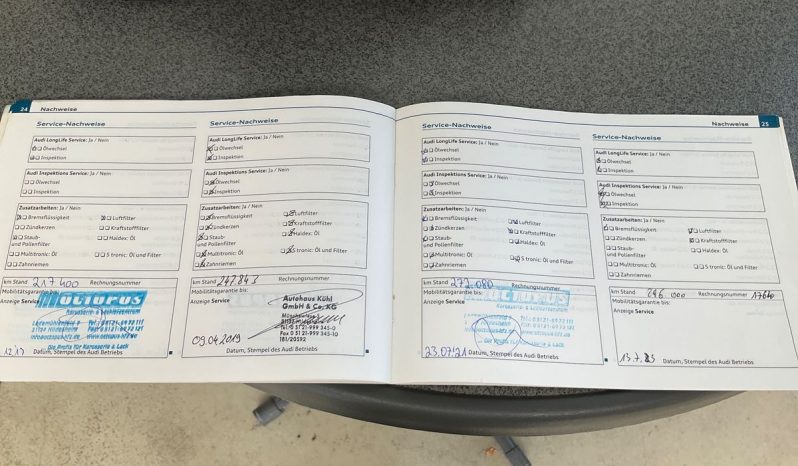 24 Nachweise
Service-Nachweise
Audi LongLife Service: Ja / Nein
Ölwechsel
Inspektion
Audi Inspektions Service: Ja / Nein
Ölwechsel
Inspektion
Zusatzarbeiten: Ja / Nein
Bremsflüssigkeit Luftfilter
Zündkerzen Kraftstofffilter
Staub- und Pollenfilter Haldex: Öl
Multitronic: Öl S tronic: Öl und Filter
Zahnriemen
km Stand 217 400 Rechnungsnummer
Mobilitätsgarantie bis:
Anzeige Service
OCTOPUS
Karosserie- & Lackierzentrum
Die Profis für Karosserie & Lack
Datum, Stempel des Audi Betriebs
Service-Nachweise
Audi LongLife Service: Ja / Nein
Ölwechsel
Inspektion
Audi Inspektions Service: Ja / Nein
Ölwechsel
Inspektion
Zusatzarbeiten: Ja / Nein
Bremsflüssigkeit Luftfilter
Zündkerzen Kraftstofffilter
Staub- und Pollenfilter Haldex: Öl
Multitronic: Öl S tronic: Öl und Filter
Zahnriemen
km Stand 247.843 Rechnungsnummer
Mobilitätsgarantie bis:
Anzeige Service
Autohaus Kühl
GmbH & Co. KG
Tel. 0 51 21-999 345-0
Fax 0 51 21-999 345-10
181/20592
09.04.2019
Datum, Stempel des Audi Betriebs
Nachweise 25
Service-Nachweise
Audi LongLife Service: Ja / Nein
Ölwechsel
Inspektion
Audi Inspektions Service: Ja / Nein
Ölwechsel
Inspektion
Zusatzarbeiten: Ja / Nein
Bremsflüssigkeit Luftfilter
Zündkerzen Kraftstofffilter
Staub- und Pollenfilter Haldex: Öl
Multitronic: Öl S tronic: Öl und Filter
Zahnriemen
km Stand 272.080 Rechnungsnummer
Mobilitätsgarantie bis:
Anzeige Service
OCTOPUS
Karosserie- & Lackierzentrum
Die Profis für Karosserie & Lack
23.07.21 Datum, Stempel des Audi Betriebs
Service-Nachweise
Audi LongLife Service: Ja / Nein
Ölwechsel
Inspektion
Audi Inspektions Service: Ja / Nein
Ölwechsel
Inspektion
Zusatzarbeiten: Ja / Nein
Bremsflüssigkeit Luftfilter
Zündkerzen Kraftstofffilter
Staub- und Pollenfilter Haldex: Öl
Multitronic: Öl S tronic: Öl und Filter
Zahnriemen
km Stand Rechnungsnummer
Mobilitätsgarantie bis:
Anzeige Service
Datum, Stempel des Audi Betriebs